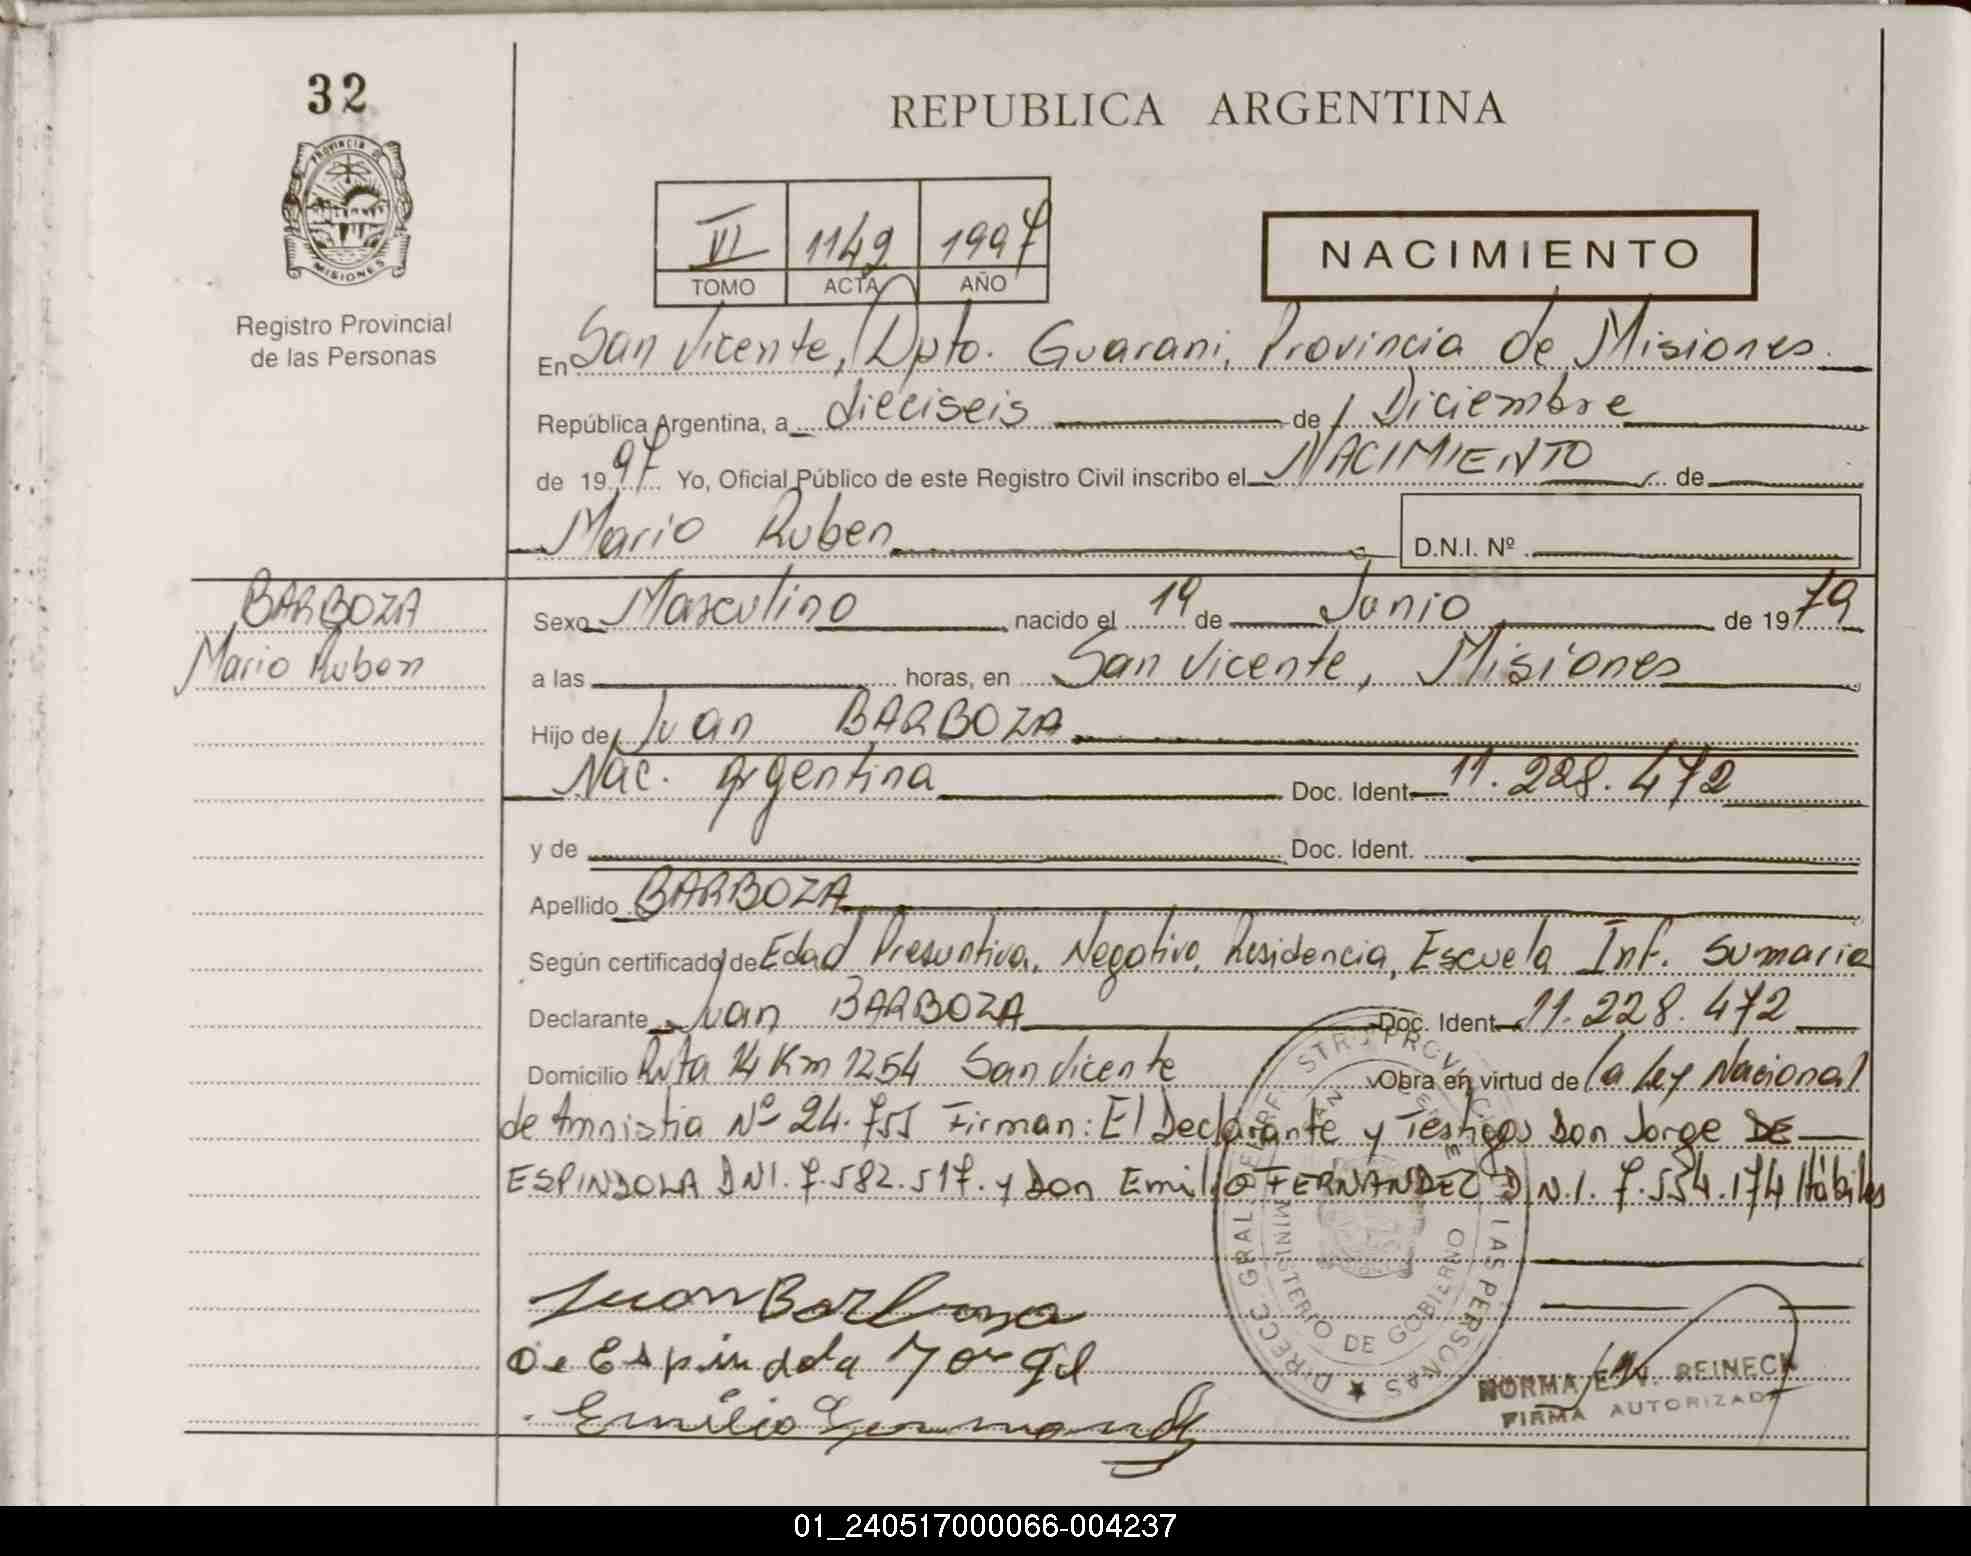 32
REPUBLICA ARGENTINA
PROVINCIA DE
MISIONES
Registro Provincial
de las Personas
VI 1149 1997
TOMO ACTA AÑO
NACIMIENTO
En San Vicente, Dpto. Guarani, Provincia de Misiones.
República Argentina, a dieciseis de Diciembre
de 1997 Yo, Oficial Público de este Registro Civil inscribo el NACIMIENTO de
Mario Ruben D.N.I. Nº
BARBOZA
Mario Ruben
Sexo Masculino nacido el 19 de Junio de 1979
a las horas, en San Vicente, Misiones
Hijo de Juan BARBOZA
Nac. Argentina Doc. Ident 11.228.472
y de Doc. Ident.
Apellido BARBOZA
Según certificado de Edad Presuntiva, Negativo, Residencia, Escuela Inf. Sumaria
Declarante Juan BARBOZA Doc. Ident 11.228.472
Domicilio Ruta 14 Km 1254 San Vicente Obra en virtud de la Ley Nacional
de Amnistia Nº 24.755 Firman: El Declarante y Testigos Don Jorge DE
ESPINDOLA DNI. 7.582.517. y Don Emilio FERNANDEZ D.N.I. 7.554.174 Hábiles
Juan Barboza
De Espindola Jorge
Emilio Fernandez
DIRECC GRAL. LAS PERSONAS
MINISTERIO DE GOBIERNO
NORMA REINECK
FIRMA AUTORIZADA
01_240517000066-004237